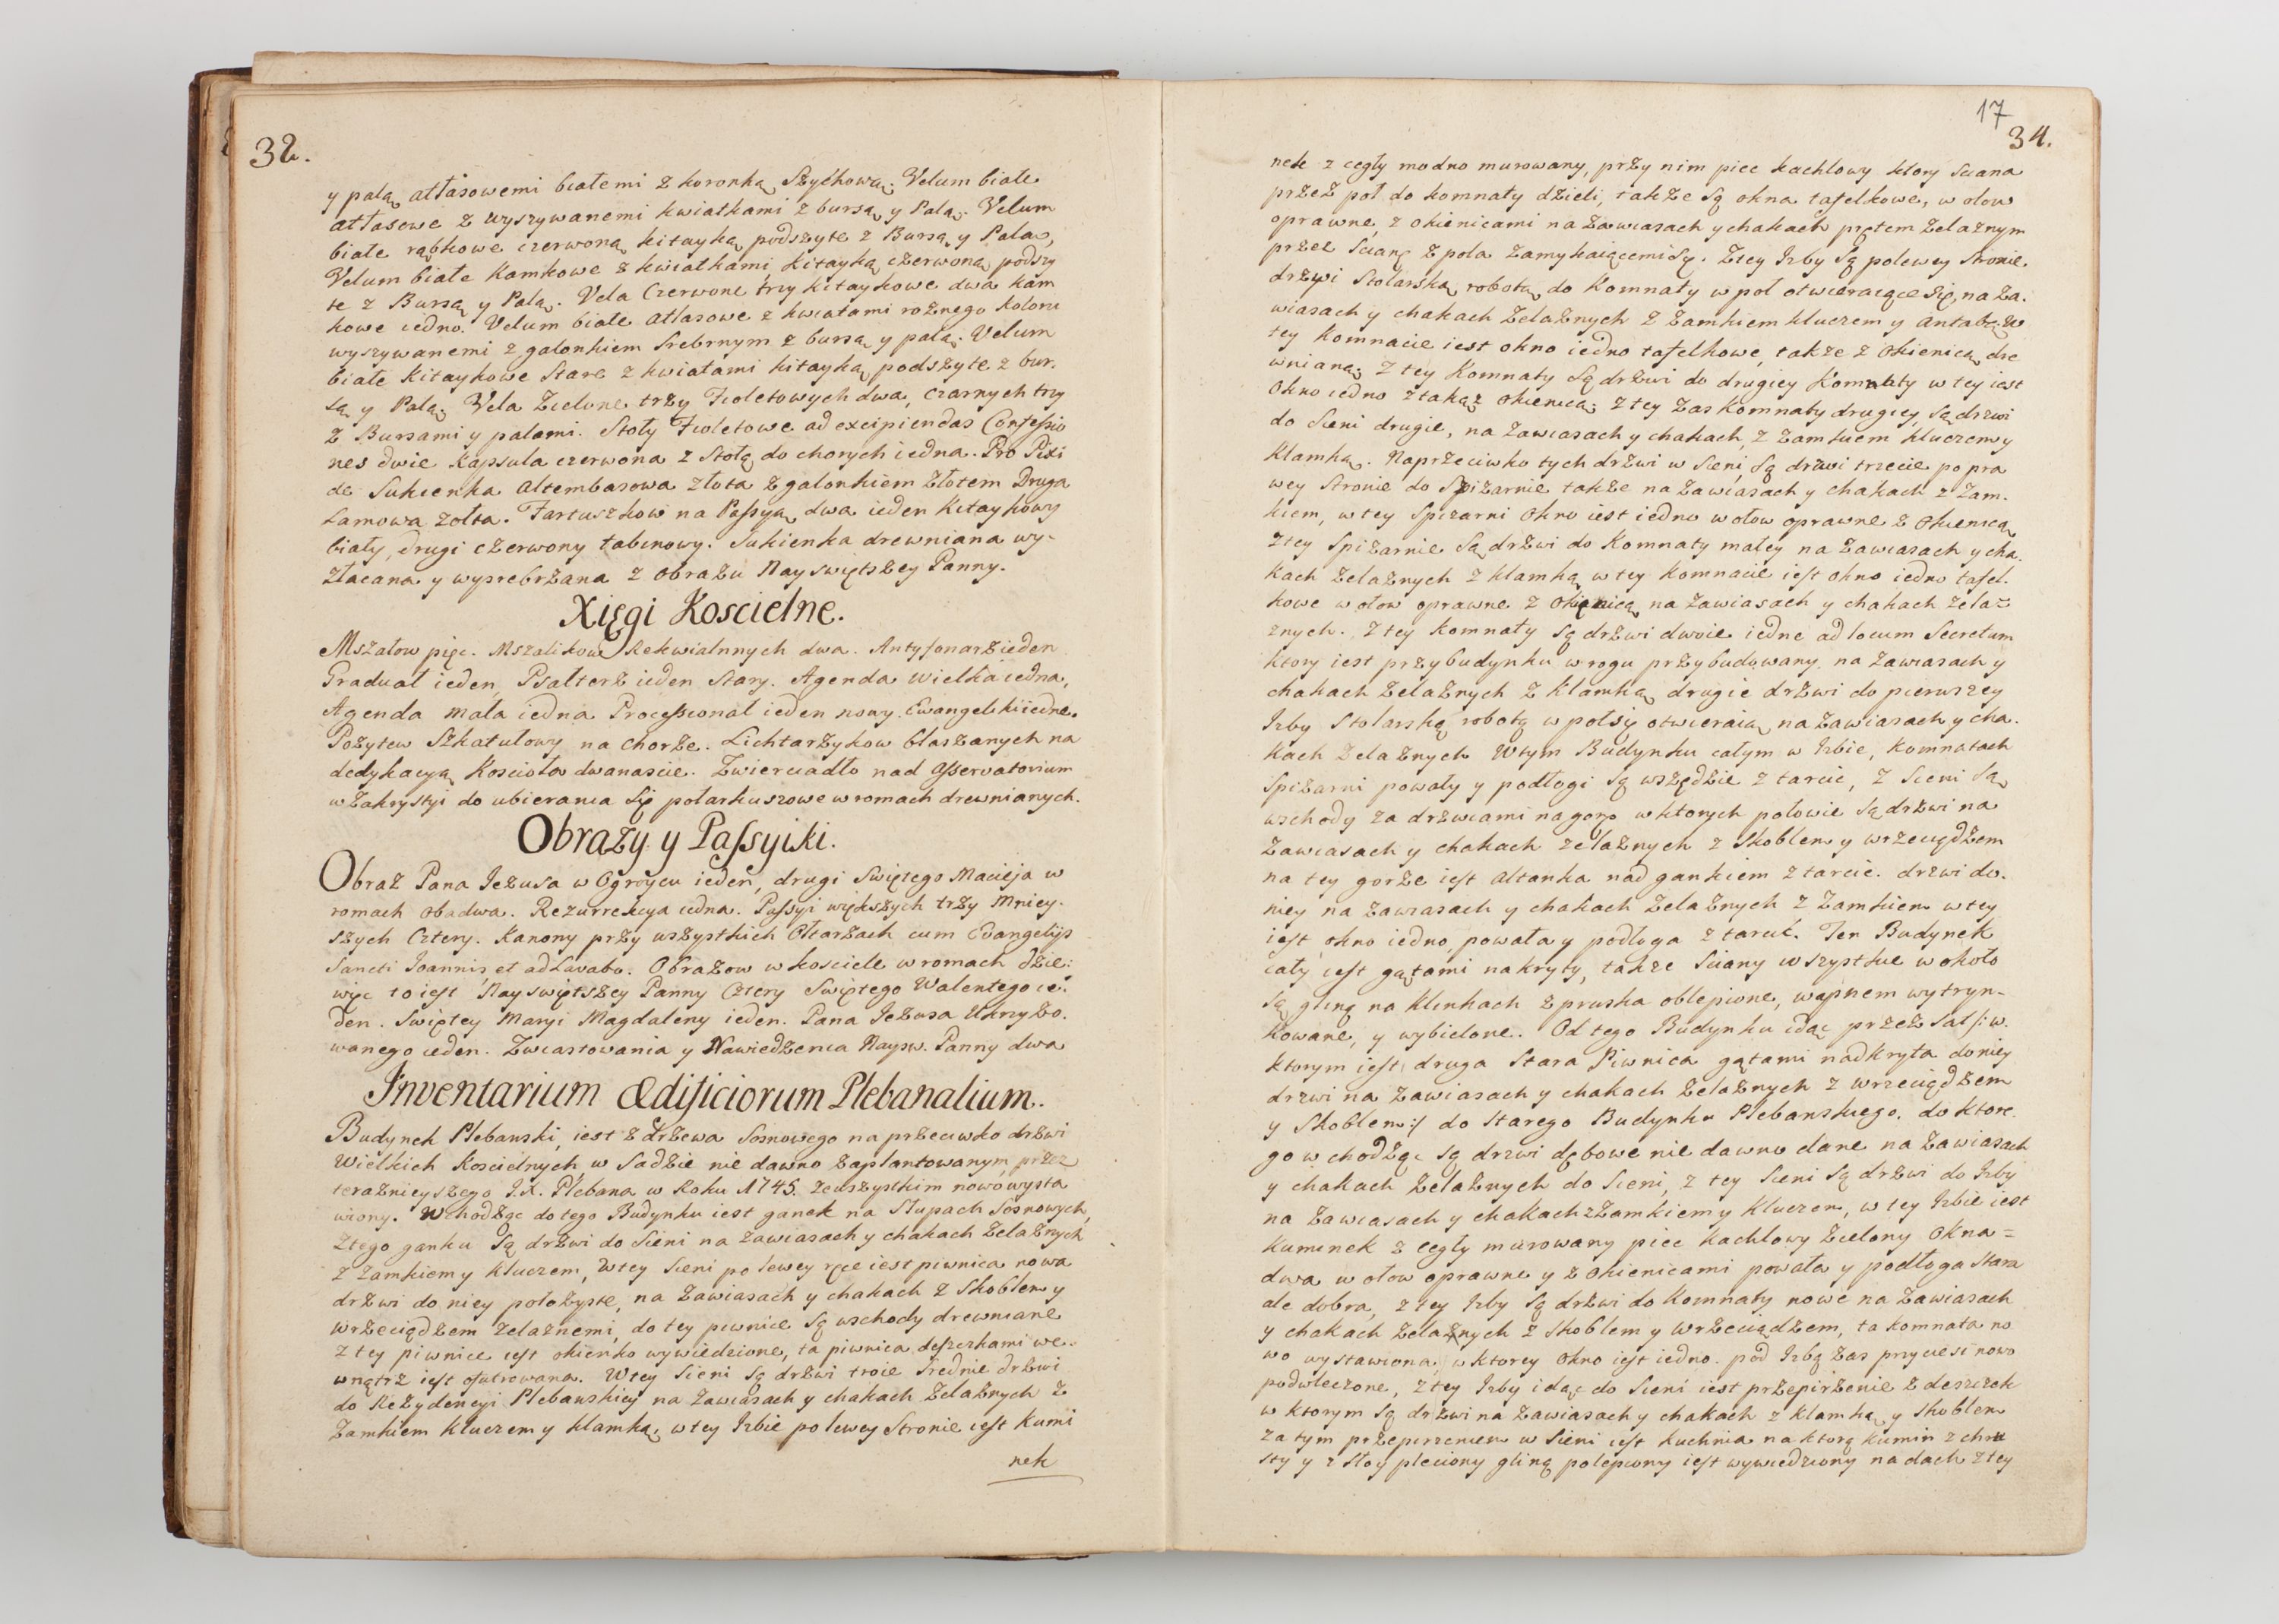 32.
y palą atłasowemi białemi z koronką Szychową; Velum białe
atłasowe z wyszywanemi kwiatkami z bursą y Palą. Velum
białe rąbkowe czerwoną kitayką podszyte z Bursą y Palą,
Velum białe Kamkowe z kwiatkami, Kitayką czerwoną podszy
te z Bursą y Palą. Vela Czerwone trzy kitaykowe dwa kam
kowe iedno. Velum białe atłasowe z kwiatami rożnego koloru
wyszywanemi z galonkiem Srebrnym z bursą y palą. Velum
białe Kitaykowe Stare z kwiatami kitayką podszyte z bur.
są y Palą; Vela Zielone trzy Fioletowych dwa, czarnych trzy
z Bursami y palami. Stoły Fioletowe ad excipiendas Confessio
nes dwie Kapsula czerwona z Stołą do chorych iedna. Pro Pixi
de Sukienka Altembasowa złota z galonkiem Złotem Druga
Lamowa zołta. Fartuszkow na Passyą dwa ieden Kitaykowy
biały, drugi czerwony tabinowy. Sukienka drewniana wy-
złacana y wysrebrzana z obrazu Nayswiętszey Panny.
Xięgi Koscielne.
Mszałow pięc. Mszalikow Rekwialnnych dwa. Antyfonarz ieden
Graduał ieden, Psałterz ieden Stary. Agenda wielka iedna,
Agenda mała iedna Processionał ieden nowy. Ewangeliki iedne.
Pozytew Szkatułowy na chorze. Lichtarzykow blaszanych na
dedykacyą Kosciołа dwanascie. Zwierciadło nad Asservatorium
w Zakrystyi do ubierania Się połarkuszowe w romach drewnianych.
Obrazy y Passyiki.
Obraz Pana Jezusa w Ogroycu ieden, drugi Swiętego Macieja w
romach obadwa. Rezurrekcya iedna. Passyi większych trzy Mniey.
szych Cztery. Kanony przy wszystkich Ołtarzach cum Evangelijs
Sancti Joannis et ad Lavabo. Obrazow w kosciele w romach dzie:
więc to iest Nayswiętszey Panny Cztery Swiętego Walentego ie:
den. Swiętey Maryi Magdaleny ieden. Pana Jezusa Ukrzyżo.
wanego ieden. Zwiastowania y Nawiedzenia Naysw. Panny dwa
Inventarium Ædificiorum Plebanalium.
Budynek Plebanski, iest z drzewa Sosnowego na przeciwko drzwi
Wielkich Koscielnych w Sadzie nie dawno zaplantowanym przez
teraznieyszego J.X. Plebana w Roku 1745. ze wszystkim nowo wysta
wiony. Wchodząc do tego Budynku iest ganek na Słupach Sosnowych,
Z tego ganku Są drzwi do Sieni na zawiasach y chakach Zelaznych
z zamkiem y kluczem, W tey Sieni po lewey ręce iest piwnica nowa
drzwi do niey położyste, na Zawiasach y chakach z Skoblem y
Wrzeciądzem zelaznemi, do tey piwnice Są wschody drewniane
z tey piwnice iest okienko wywiedzione, ta piwnica deszczkami we-
wnątrz iest ofutrowana. W tey Sieni Są drzwi troie Srednie drzwi
do Rezydencyi Plebanskiey na Zawiasach y chakach Zelaznych z
Zamkiem kluczem y klamką, w tey Izbie po lewey Stronie iest kumi
nek
17
34.
nek z cegły modno murowany, przy nim piec kachlowy ktory Sciana
przez poł do komnaty dzieli, takze Są okna tafelkowe, w ołow
oprawne, z okienicami na Zawiasach y chakach prętem Zelaznym
przez Scianę z pola Zamykaiącemi Się. Z tey Izby Są po lewey Stronie
drzwi Stolarską robotą do Komnaty w poł otwieraiące Się, na Za.
wiasach y chakach Zelaznych z Zamkiem kluczem y antabą; w
tey Komnacie iest okno iedno tafelkowe, takze z okienicą dre
wnianą; z tey Komnaty Są drzwi do drugiey Komnaty w tey iest
Okno iedno z takąż okienicą; z tey Zas Komnaty drugiey Są drzwi
do Sieni drugie, na Zawiasach y chakach, z Zamkiem kluczem y
Klamką. Naprzeciwko tych drzwi w Sieni, Są drzwi trzecie po pra
wey Stronie do Spizarnie takze na Zawiasach y chakach z Zam.
kiem, w tey Spizarni Okno iest iedno w ołow oprawne z Okienicą
z tey Spizarnie Są drzwi do Komnaty małey na Zawiasach y cha.
kach Zelaznych z klamką w tey komnacie iest okno iedno tafel.
kowe w ołow oprawne z Okienicą na Zawiasach y chakach zelaz
znych. Z tey komnaty Są drzwi dwoie iedne ad locum Secretum
Ktory iest przy budynku w rogu przybudowany, na zawiasach y
chakach Zelaznych z klamką drugie drzwi do pierwszey
Izby Stolarską robotą w poł się otwieraią na Zawiasach y cha.
kach Zelaznych W tym Budynku całym w Izbie, komnatach
Spizarni powały y podłogi Są wszędzie z tarcic, z Sieni Są
wschody za drzwiami na gorę w ktorych połowie Są drzwi na
Zawiasach y chakach zelaznych z Skoblem y wrzeciądzem
na tey gorze iest Altanka nad gankiem z tarcic. drzwi do.
niey na Zawiasach y chakach Zelaznych z Zamkiem w tey
iest okno iedno, powała y podłoga z tarcic. Ten Budynek
cały iest gątami nakryty, takze Sciany wszystkie w około
Są gliną na Klinkach z pruska oblepione, wapnem wytryn-
kowane, y wybielone. Od tego Budynku idąc przez Sad /: w.
ktorym iest druga Stara Piwnica gątami nadkryta do niey
drzwi na Zawiasach y chakach Zelaznych z wrzeciądzem
y Skoblem :/ do Starego Budynku Plebanskiego. do ktore
go wchodząc Są drzwi dębowe nie dawno dane na Zawiasach
y chakach Zelaznych do Sieni, z tey Sieni Są drzwi do Izby
na Zawiasach y chakach z Zamkiem y kluczem, w tey Izbie iest
Kuminek z cegły murowany piec kachlowy Zielony Okna=
dwa w ołow oprawne y z Okienicami powała y podłoga Stara
ale dobra, z tey Izby Są drzwi do Komnaty nowe na Zawiasach
y chakach Zelaznych z Skoblem y wrzeciądzem, ta komnata no
wo wystawiona, w ktorey Okno iest iedno. pod Izbą zas przyciesi nowo
podwleczone, z tey Izby idąc do Sieni iest przepirzenie z deszczek
w ktorym Są drzwi na Zawiasach y chakach z klamką y Skoblem
za tym przepirzeniem w Sieni iest kuchnia na ktorą kumin z chru
sty y z Słoy pleciony gliną polepiony iest wywiedziony na dach z tey